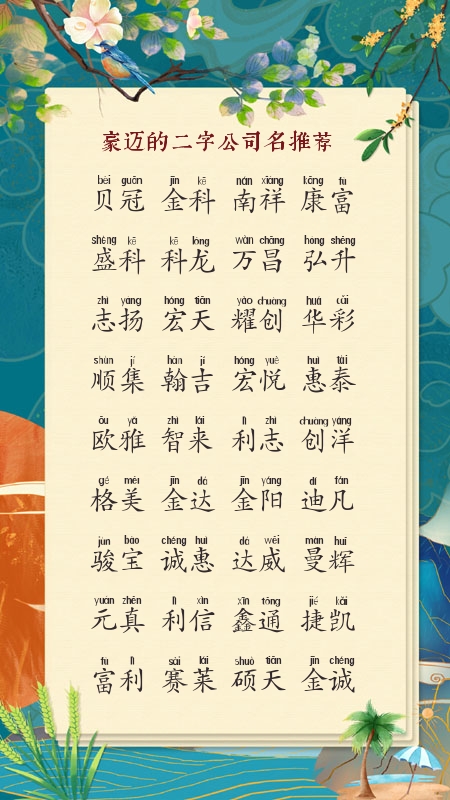 豪迈的二字公司名推荐
bèi guān jīn kē nán xiáng kāng fù
贝冠 金科 南祥 康富
shèng kē kē lóng wàn chāng hóng shēng
盛科 科龙 万昌 弘升
zhì yáng hóng tiān yào chuàng huá cǎi
志扬 宏天 耀创 华彩
shùn jí hàn jí hóng yuè huì tài
顺集 翰吉 宏悦 惠泰
ōu yǎ zhì lái lì zhì chuàng yáng
欧雅 智来 利志 创洋
gé měi jīn dá jīn yáng dí fán
格美 金达 金阳 迪凡
jùn bǎo chéng huì dá wēi màn huī
骏宝 诚惠 达威 曼辉
yuán zhēn lì xìn xīn tōng jié kǎi
元真 利信 鑫通 捷凯
fù lì sài lái shuò tiān jīn chéng
富利 赛莱 硕天 金诚